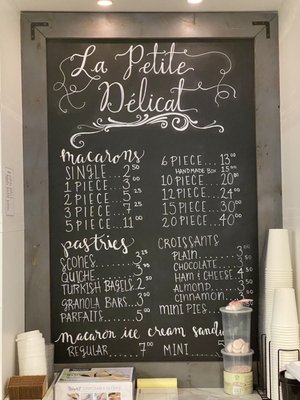 La Petite
Délicat
macarons
SINGLE...2 50
1 PIECE...3
2 PIECE...5
3 PIECE...7
5 PIECE...11
6 PIECE...13 00
HANDMADE BOX 15
10 PIECE...20
12 PIECE...24
15 PIECE...30
20 PIECE...40 00
pastries
SCONES
QUICHE
TURKISH BAGELS 2
GRANOLA BARS...3
PARFAITS...5
CROISSANTS
PLAIN
CHOCOLATE
HAM & CHEESE 4
ALMOND
cinnamon
mini pies
macaron ice cream
REGULAR...7 00
MINI